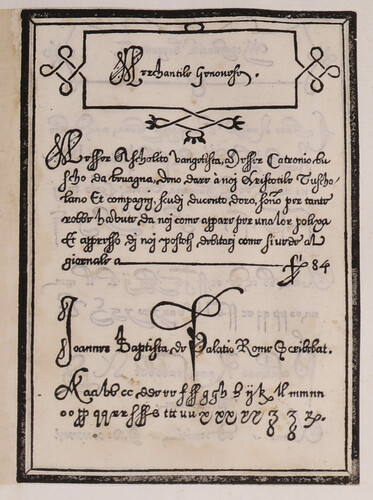 Merchantile Genouese.
Messer Ascholito vangelista, Messer Catronio bu
scho, da bruagna, deno dare à noj Aristotile Tuscho-
lano Et compagnj, scudj ducento, doro, sono per tante
robbe habute, da noj come appare per una lor poliza
Et appresso dj noj postoh debitorj come si uede al
giornale a ff 84
Ioannes Baptista, de Palatio Rome Scribebat.
A a a b b c c d d e e r r f ff g g h h ij k l l m m n n
o o pp qq r r ff ss s tt u u x x x y y z z z